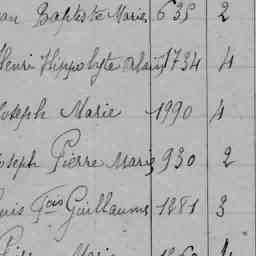 an Baptiste Marie 635 2
Henri Hippolyte Alain 1734 4
Joseph Marie 1990 4
oseph Pierre Marie 930 2
ouis Fois Guillaume 1881 3
Marie